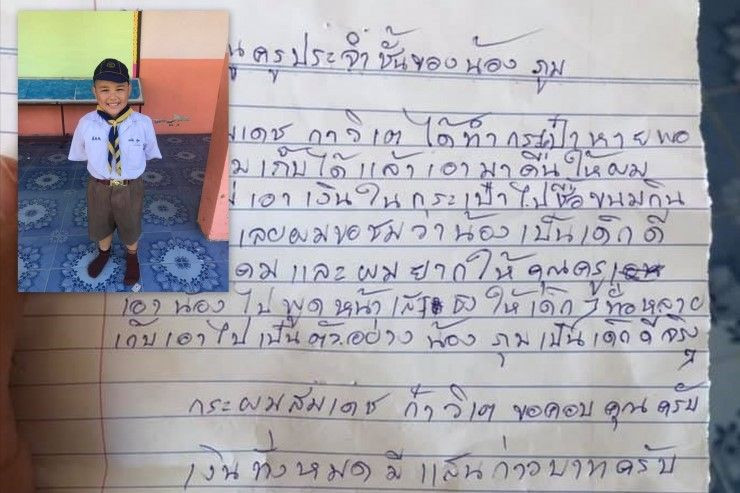 ครูประจำชั้นของน้อง ภูม
เดช กาวิเต ได้ทำกระเป๋าหายพอ
เก็บได้ แล้วเอามาคืนให้ผม
เอาเงินในกระเป๋าไปซื้อขนมกิน
เลยผมขอชมว่าน้องเป็นเด็กดี
และผมยากให้คุณครู
เอาน้องไปพูดหน้าเสาธงให้เด็กๆ ทั้งหลาย
เก็บเอาไปเป็นตัวอย่าง น้องภูมเป็นเด็กดีจริงๆ
กระผมสมเดช ก๋าวิเต ขอคอบคุณครับ
เงินทั้งหมดมีแสนก่าวบาทครับ